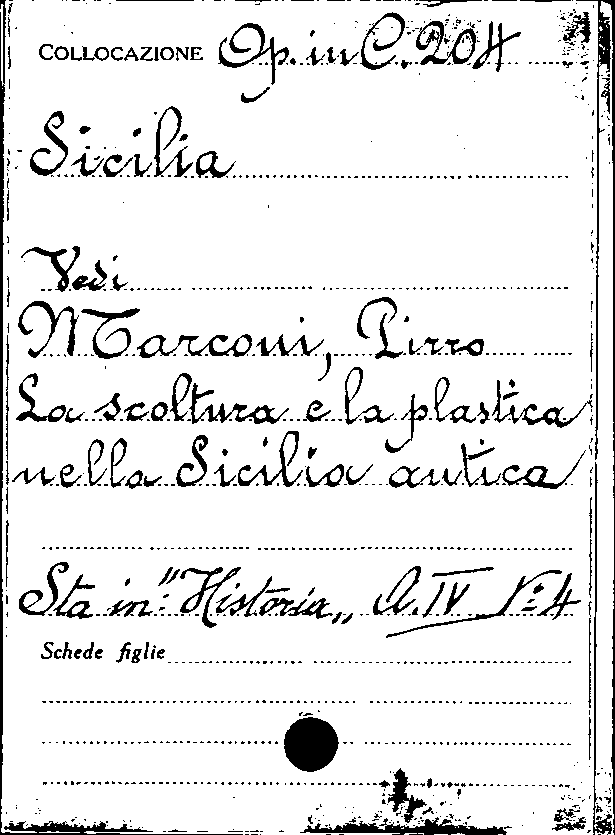 COLLOCAZIONE Op. in C. 204
Sicilia
Vedi
Marconi, Pirro
La scoltura e la plastica
nella Sicilia antica
Sta in: "Historia„ A. IV N: 4
Schede figlie